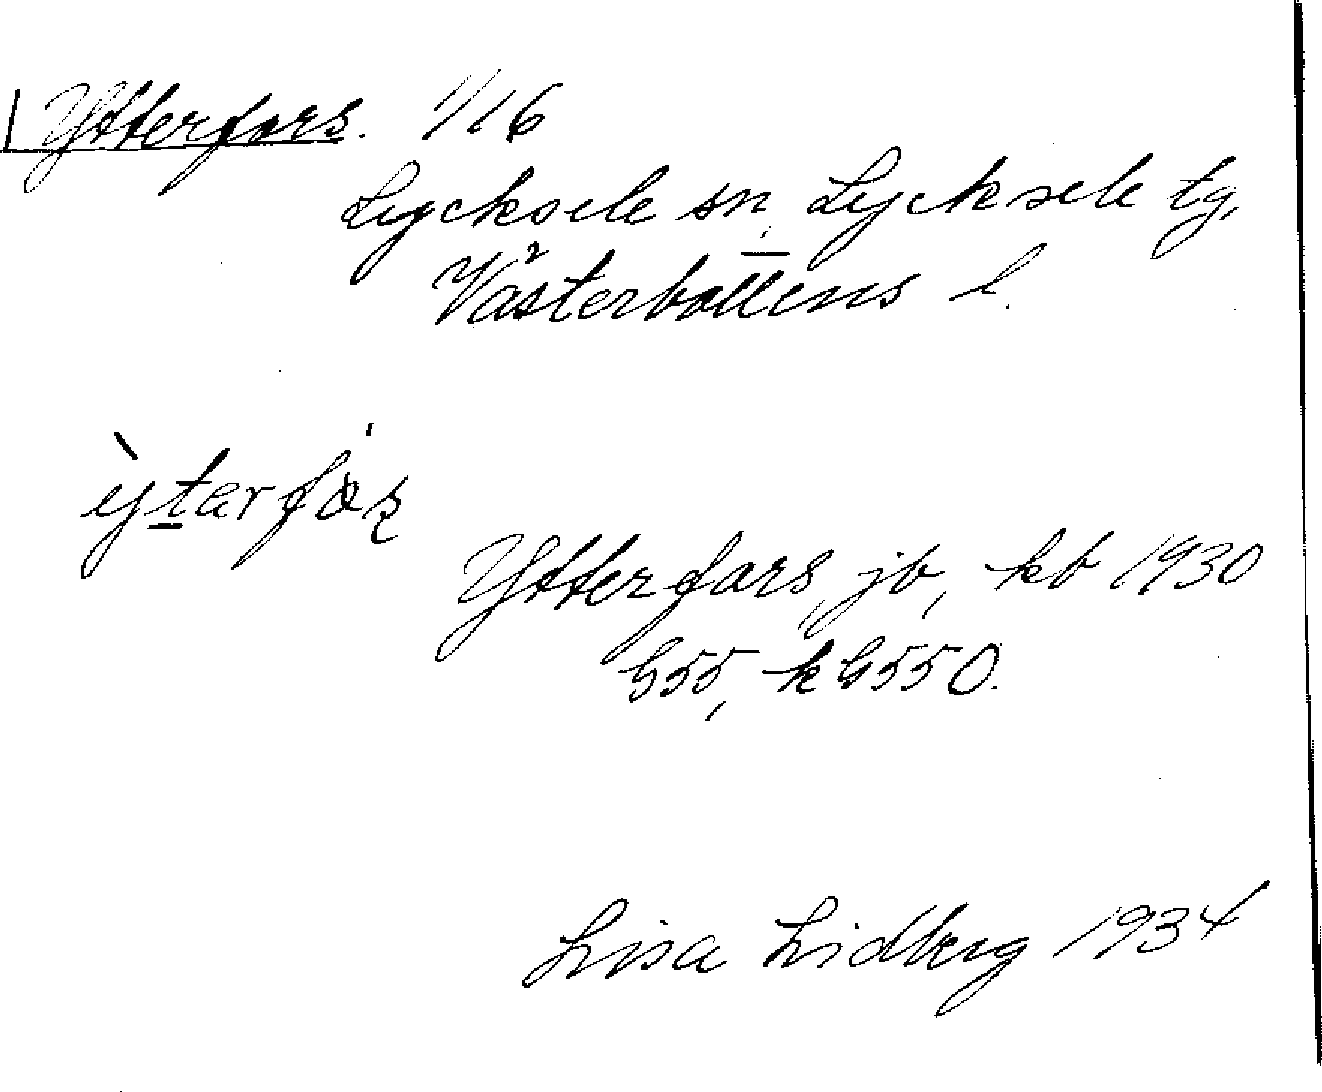 Ytterfors. 1/16
Lycksele sn, Lycksele tg,
Västerbottens l.
ỳtərfɔʂ
Ytterfors, jb, kb 1930
G55, k G550.
Lisa Lidberg 1934